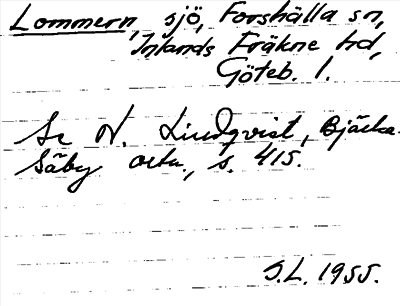 Lommern, sjö, Forshälla sn,
Inlands Fräkne hd,
Göteb. l.
Se N. Lindqvist, Bjärka-
Säby ortn., s. 415.
S.L. 1955.